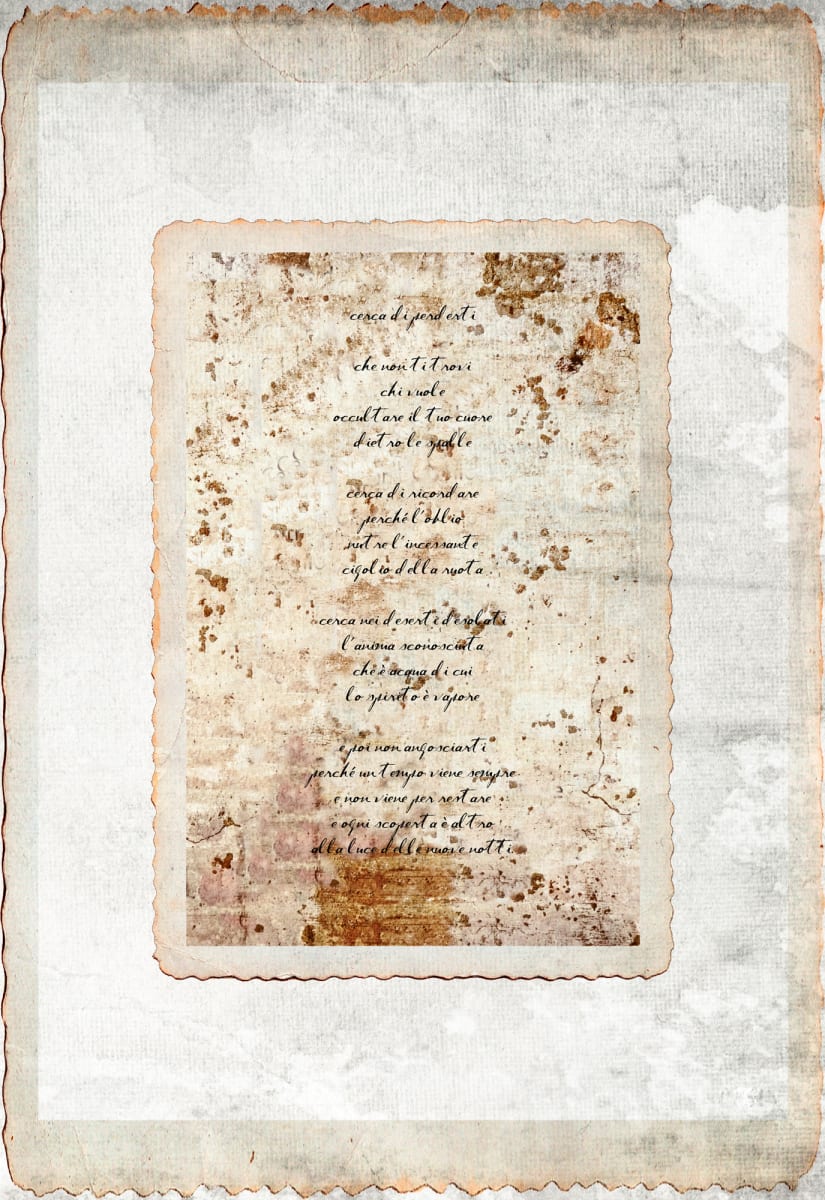 cerca di perderti
che non ti trovi
chi vuole
occultare il tuo cuore
dietro le spalle
cerca di ricordare
perché l'oblio
nutre l'incessante
cigolio della ruota
cerca nei deserti desolati
l'anima sconosciuta
che è acqua di cui
lo spirito è vapore
e poi non angosciarti
perché un tempo viene sempre
e non viene per restare
e ogni scoperta è altro
alla luce delle nuove notti.